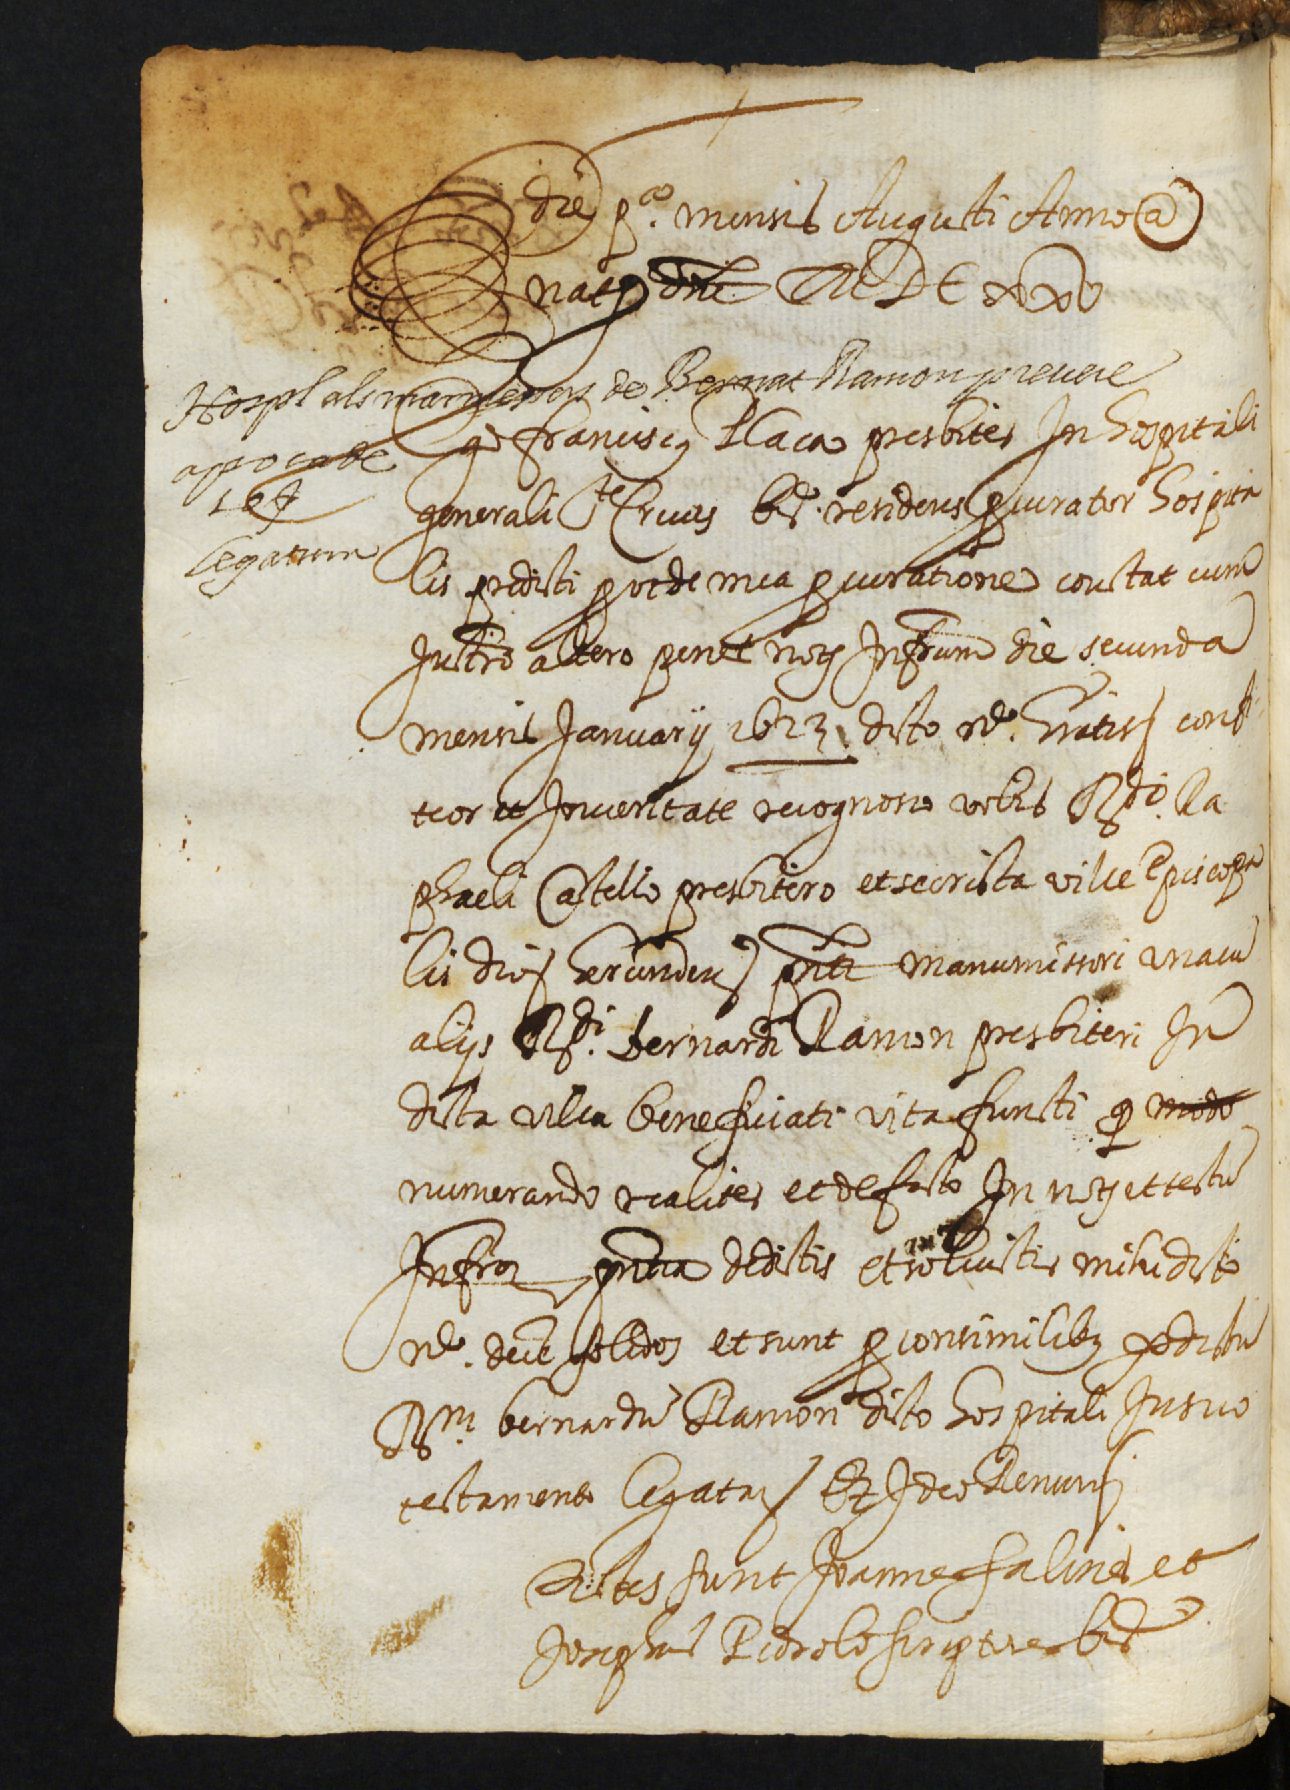 die p.º mensis Augusti Anno a
nat. dni M DC xxv
Hospl als marmessors de Bernat Ramon prevere
appocade
10 ss
legatum
Ego franciscus Placa presbiter In hospitali
generali Ste Crucis bñe residens procurator hospita
lis predicti prot de mea procuratione constat cum
Instro altero penes noty Infrum die secunda
mensis Januarij 1623 dicto nē Gratis confi
teor et Inveritate recognosco vobis Rdo. Ra
phaeli Castello presbitero et secrista ville Episcopa
lis dioc Gerunden pnti manumissori unacu
alijs Rdi. bernardi Ramon presbiteri In
dicta villa beneficiati vita functi q modo
numerando realiter et de facto In noty et testiu
Infror pntia dedistis et solvistis mihi dicto
nē. dece solidos et sunt pro consimilibus per dictu
Rm. bernardu Ramon dicto hospitali In suo
testamento legatis Et Ideo Renun
Testes sunt Joannes salines et
Josephus Pedrolo scriptores bñe